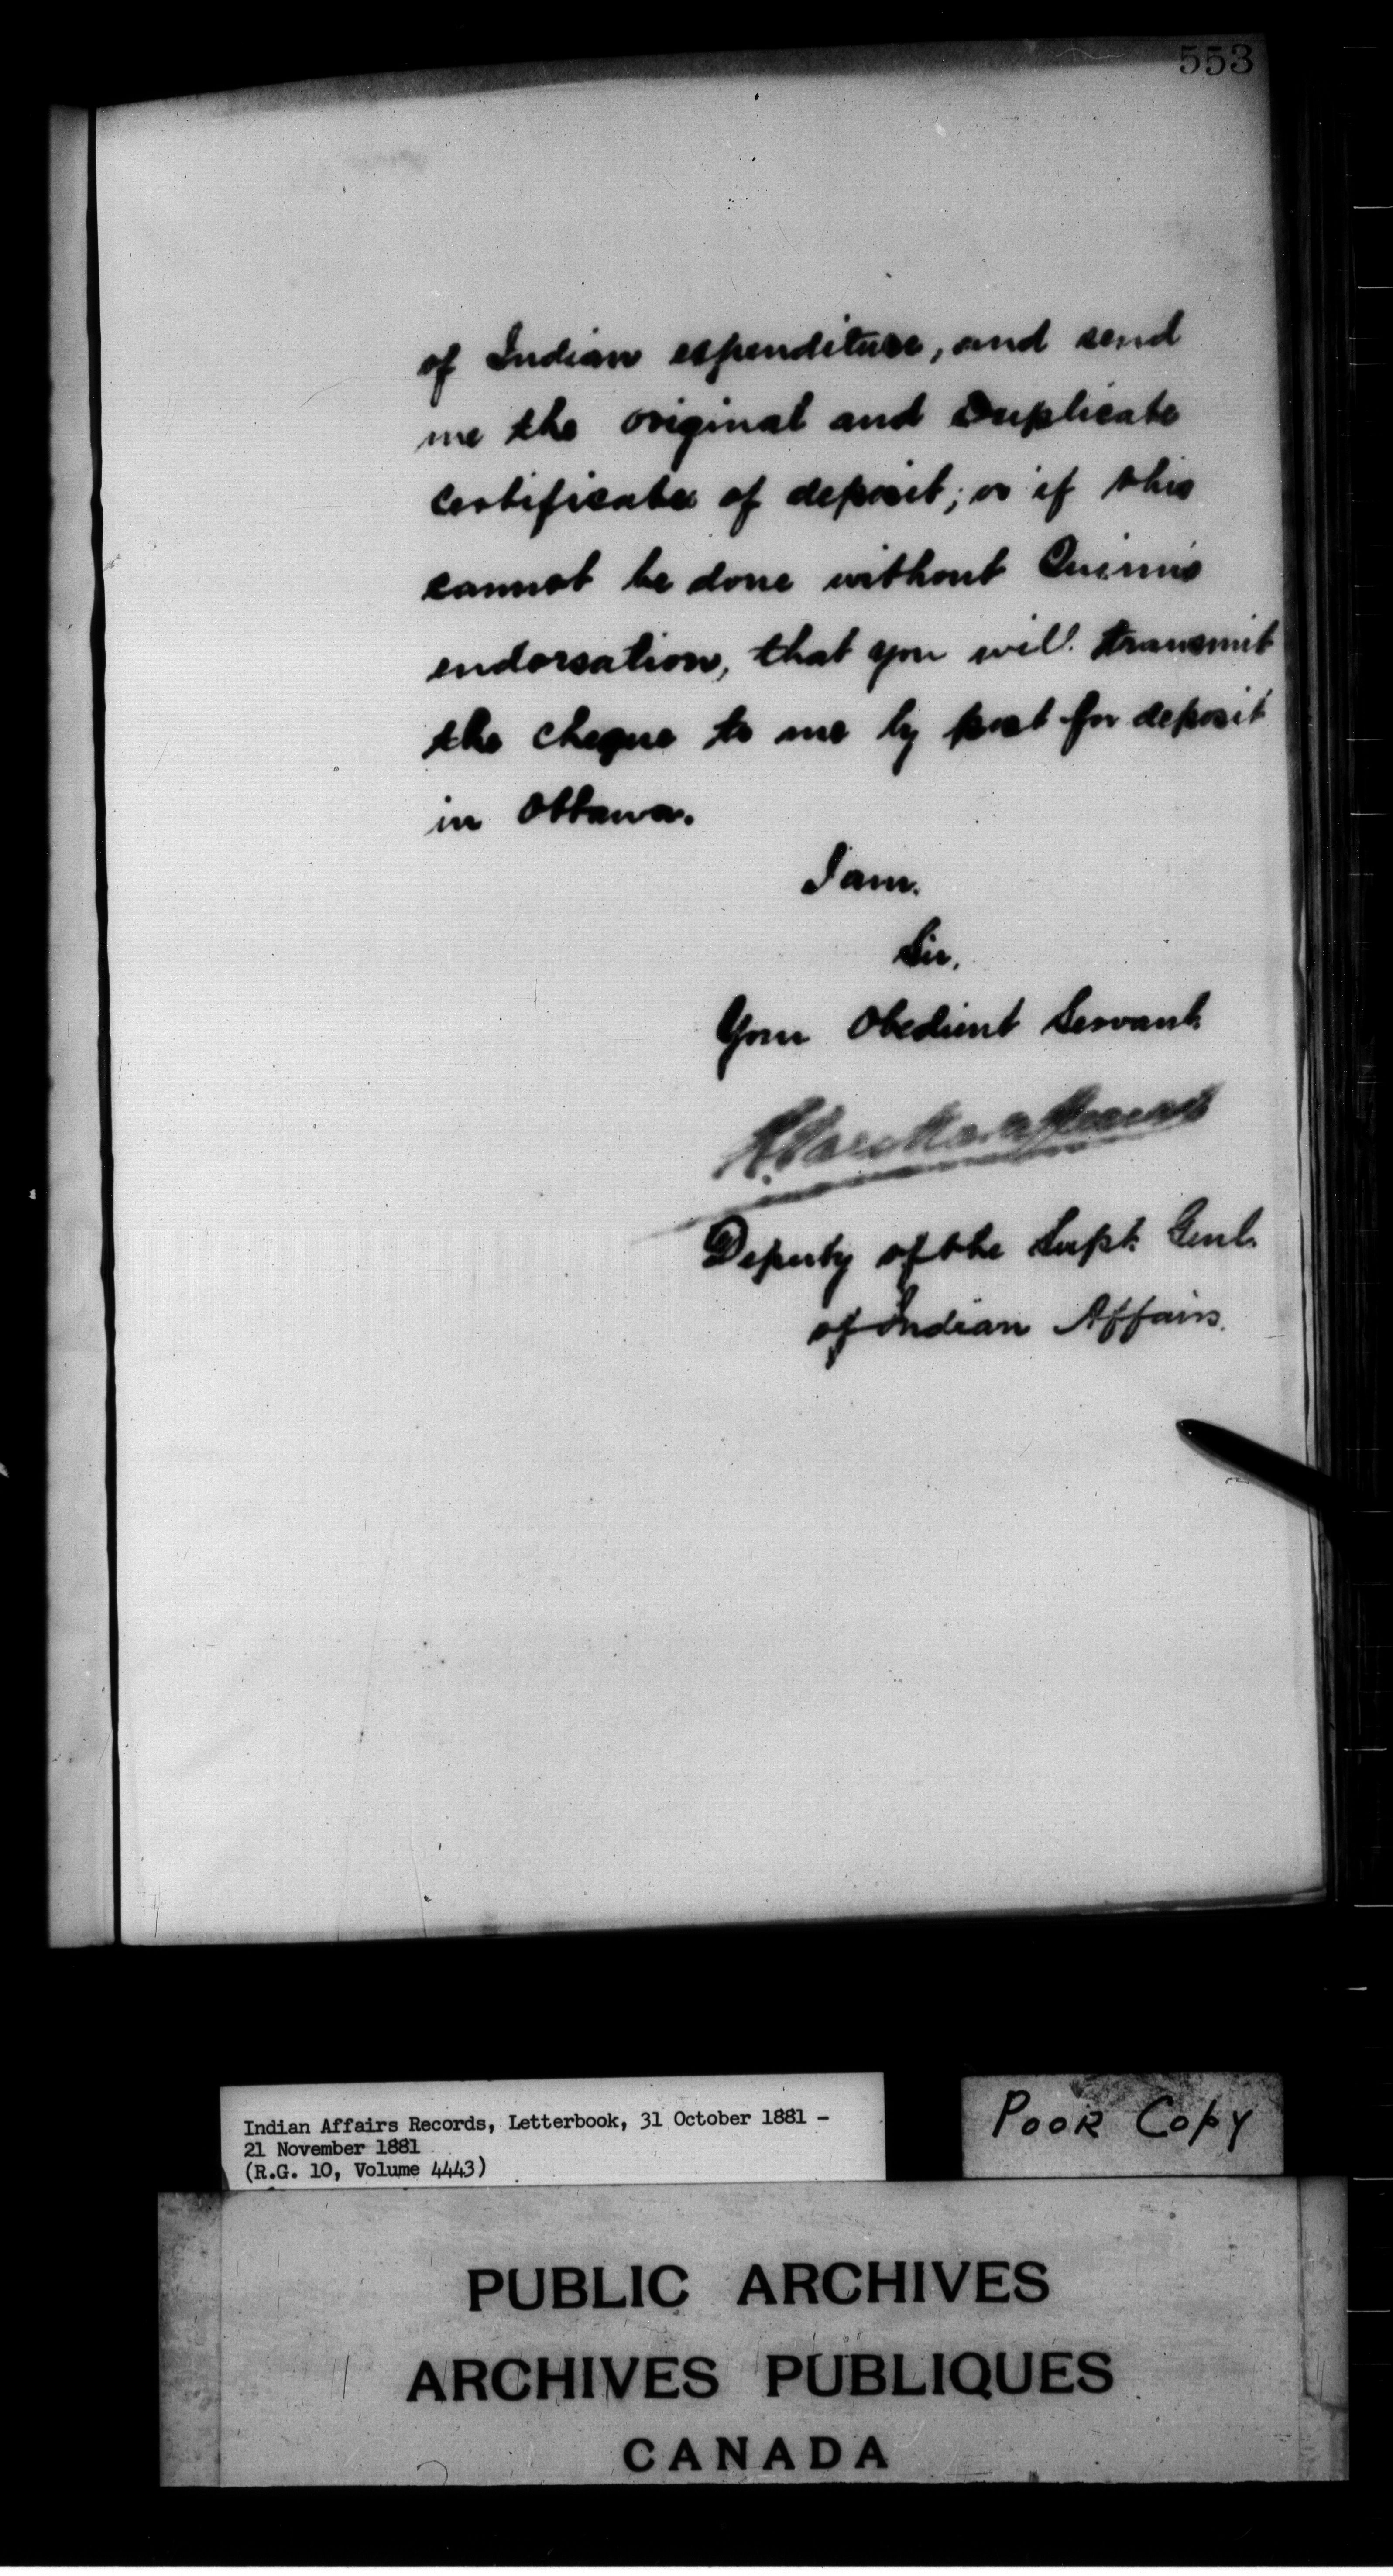 553
of Indian expenditure, and send
me the original and Duplicate
Certificates of deposit; or if this
cannot be done without Quinn's
endorsation, that you will transmit
the cheque to me by post for deposit
in Ottawa.
I am.
Sir,
Your Obedient Servant.
Deputy of the Supt. Genl.
of Indian Affairs.
Indian Affairs Records, Letterbook, 31 October 1881 -
21 November 1881
(R.G. 10, Volume 4443)
POOR COPY
PUBLIC ARCHIVES
ARCHIVES PUBLIQUES
CANADA